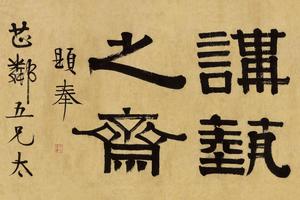 講蓺
之齋
題奉
芷鄰五兄太